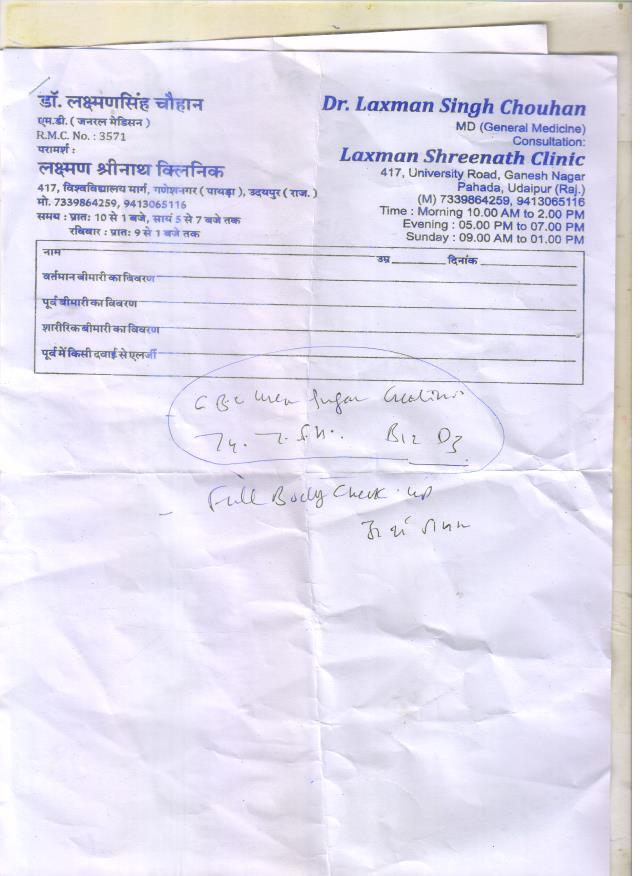 डॉ. लक्ष्मणसिंह चौहान
एम.डी. ( जनरल मेडिसन )
R.M.C. No. : 3571
परामर्श :
लक्ष्मण श्रीनाथ क्लिनिक
417, विश्वविद्यालय मार्ग, गणेशनगर ( पायड़ा ), उदयपुर ( राज. )
मो. 7339864259, 9413065116
समय : प्रातः 10 से 1 बजे, सायं 5 से 7 बजे तक
रविबार : प्रातः 9 से 1 बजे तक
Dr. Laxman Singh Chouhan
MD (General Medicine)
Consultation:
Laxman Shreenath Clinic
417, University Road, Ganesh Nagar
Pahada, Udaipur (Raj.)
(M) 7339864259, 9413065116
Time : Morning 10.00 AM to 2.00 PM
Evening : 05.00 PM to 07.00 PM
Sunday : 09.00 AM to 01.00 PM
नाम उम्र दिनांक
वर्तमान बीमारी का विवरण
पूर्व बीमारी का विवरण
शारीरिक बीमारी का विवरण
पूर्व में किसी दवाई से एलर्जी
CBC Urea Sugar Creatinine
B12 D3
Full Body Check up